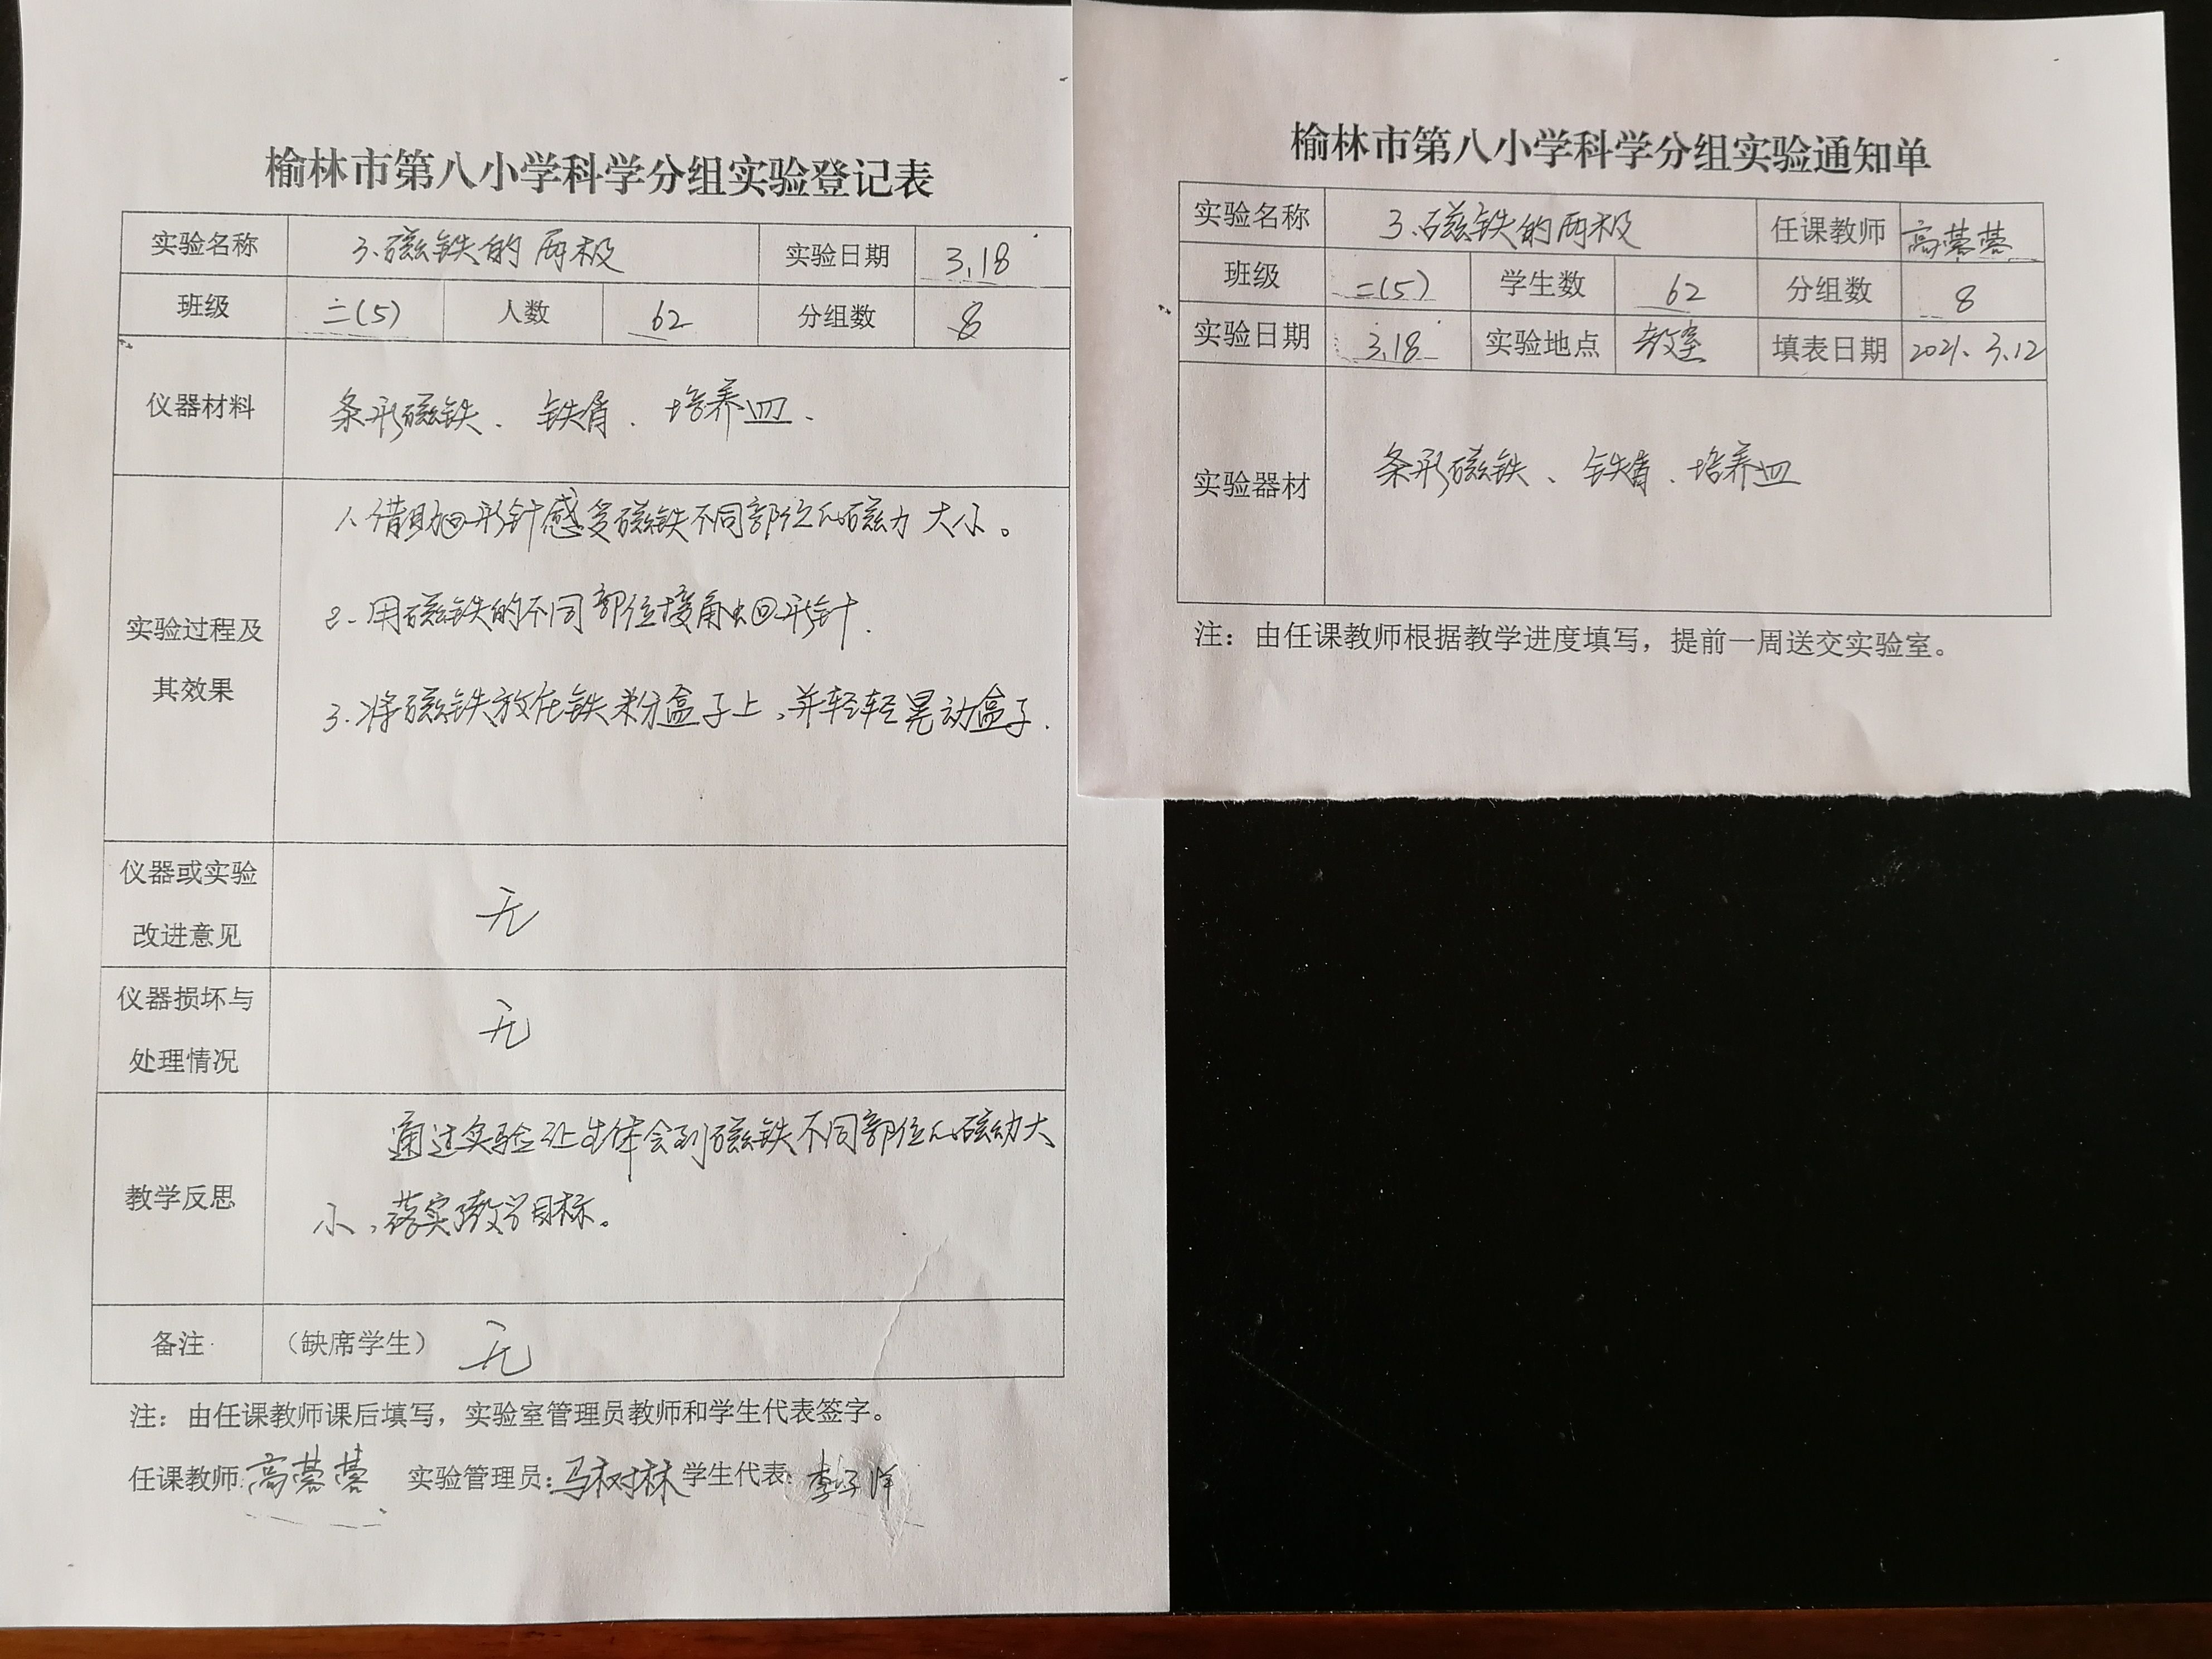 榆林市第八小学科学分组实验登记表
实验名称 3.磁铁的两极 实验日期 3.18
班级 二(5) 人数 62 分组数 8
仪器材料 条形磁铁、铁屑、培养皿.
实验过程及其效果
1、借助回形针感受磁铁不同部位的磁力大小。
2.用磁铁的不同部位接触回形针.
3.将磁铁放在铁粉盒子上,并轻轻晃动盒子.
仪器或实验
改进意见 无
仪器损坏与
处理情况 无
教学反思
通过实验让生体会到磁铁不同部位的磁力大
小,落实了教学目标。
备注 (缺席学生) 无
注：由任课教师课后填写，实验室管理员教师和学生代表签字。
任课教师:高蓉蓉 实验管理员:马树林 学生代表:李子洋
榆林市第八小学科学分组实验通知单
实验名称 3.磁铁的两极 任课教师 高蓉蓉
班级 二(5) 学生数 62 分组数 8
实验日期 3.18 实验地点 教室 填表日期 2021.3.12
实验器材 条形磁铁、铁屑、培养皿
注：由任课教师根据教学进度填写，提前一周送交实验室。